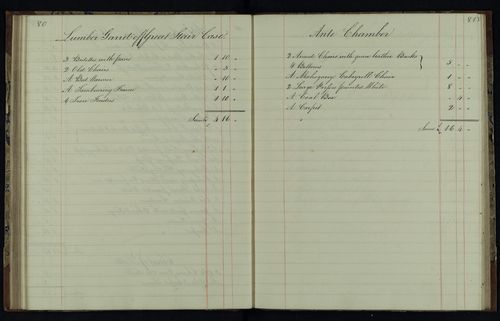 80
Lumber Garret off Great Stair Case
3 Bedsteps with
2 Old Chairs " 5 "
A Bed Warmer " 10 "
A Tambouring Frame 1 1 "
4 Iron Fenders 1 10 "
4 16 "
Ante Chamber
2 Armed Chairs with green leather Backs
& Bottoms } 5 " "
A Mahogany Chair 1 " "
2 Large Presses painted White 8 " "
A Coal Box " 4 "
A Carpet 2 " "
£ 16 4 "